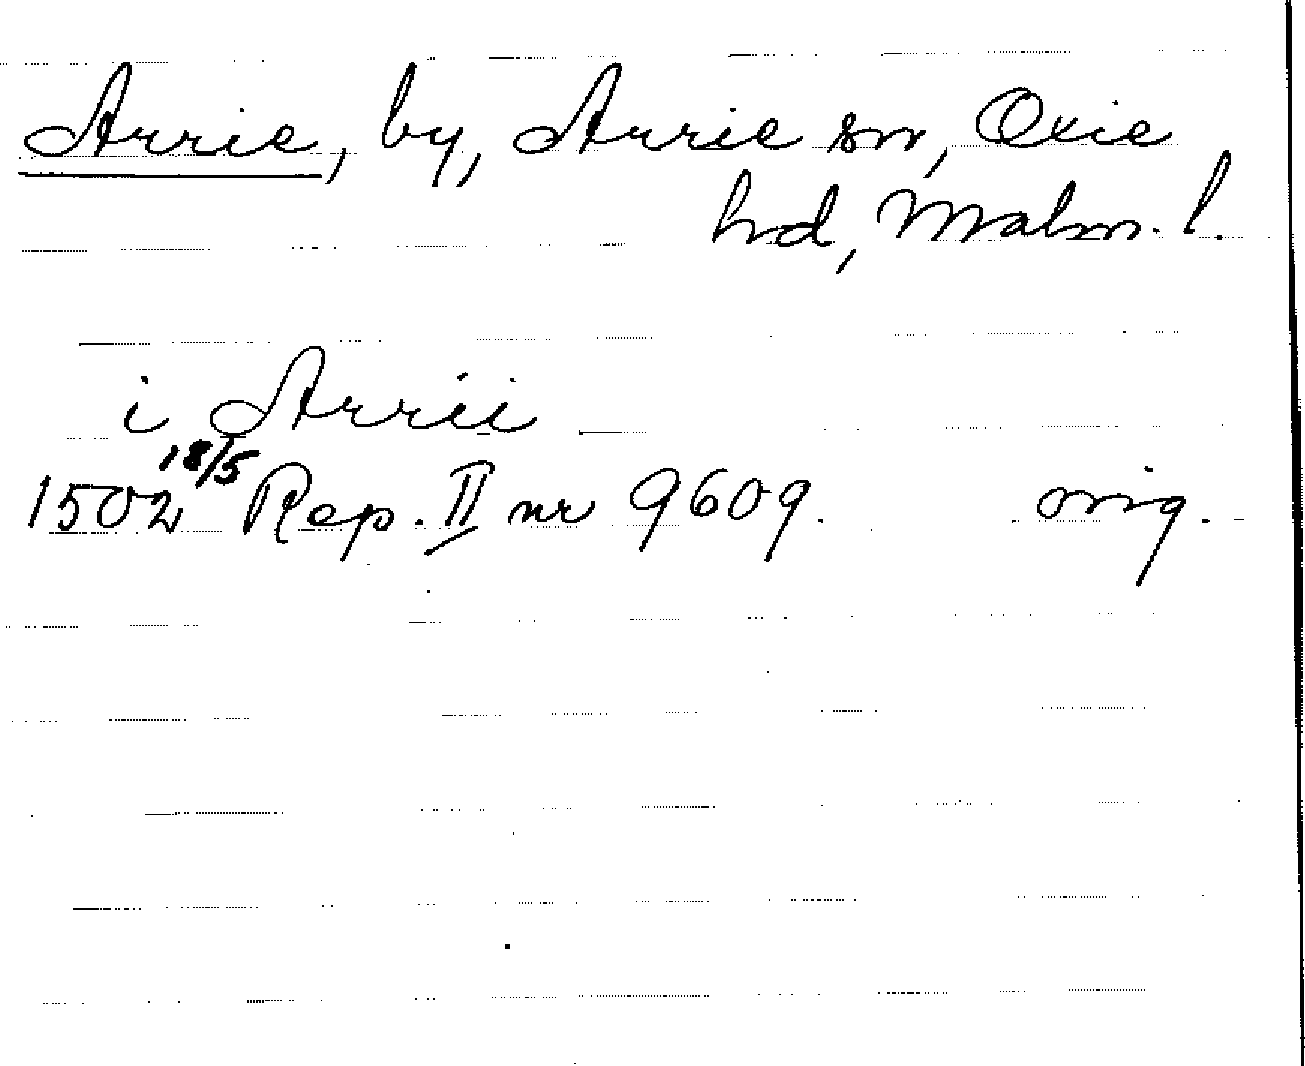 Arrie, by, Arrie sn, Oxie
hd, Malm. l.
i Arrii
1502 18/5 Rep. II nr 9609. orig.